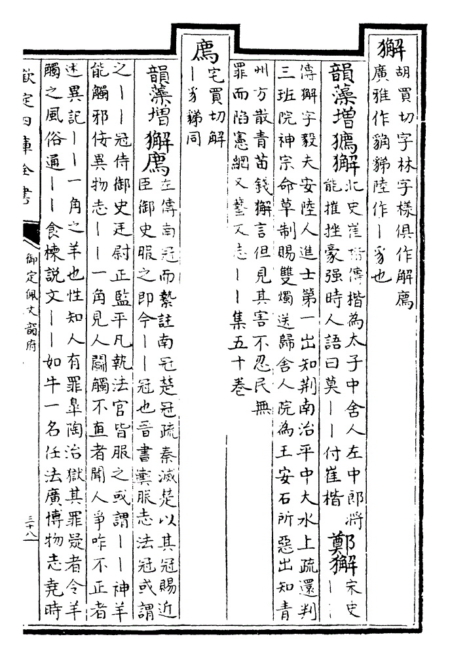 獬 胡買切字林字樣俱作解廌
廣雅作 陸作｜豸也
韻藻增㺜獬 北史崔楷傳楷為太子中舍人左中郎將
能摧挫豪強時人語曰莫｜｜付崔楷 鄭獬 宋史｜｜
傳獬字毅夫安陸人進士第一出知荆南治平中大水上疏還判
三班院神宗命草制賜雙燭送歸舍人院為王安石所惡出知青
州方散青苗錢獬言但見其害不忍民無
罪而陷憲綱又藝文志｜｜集五十卷
廌 宅買切解
｜豸 同
韻藻增獬廌 左傳南冠而縶註南冠楚冠疏秦滅楚以其冠賜近
臣御史服之即今｜｜冠也晉書輿服志法冠或謂
之｜｜冠侍御史廷尉正監平凡執法官皆服之或謂｜｜神羊
能觸邪佞異物志｜｜一角見人鬭觸不直者聞人爭咋不正者
述異記｜｜一角之羊也性知人有罪臯陶治獄其罪疑者令羊
觸之風俗通｜｜食楝說文｜｜如牛一名任法廣博物志堯時
欽定四庫全書
御定佩文韻府
三十八